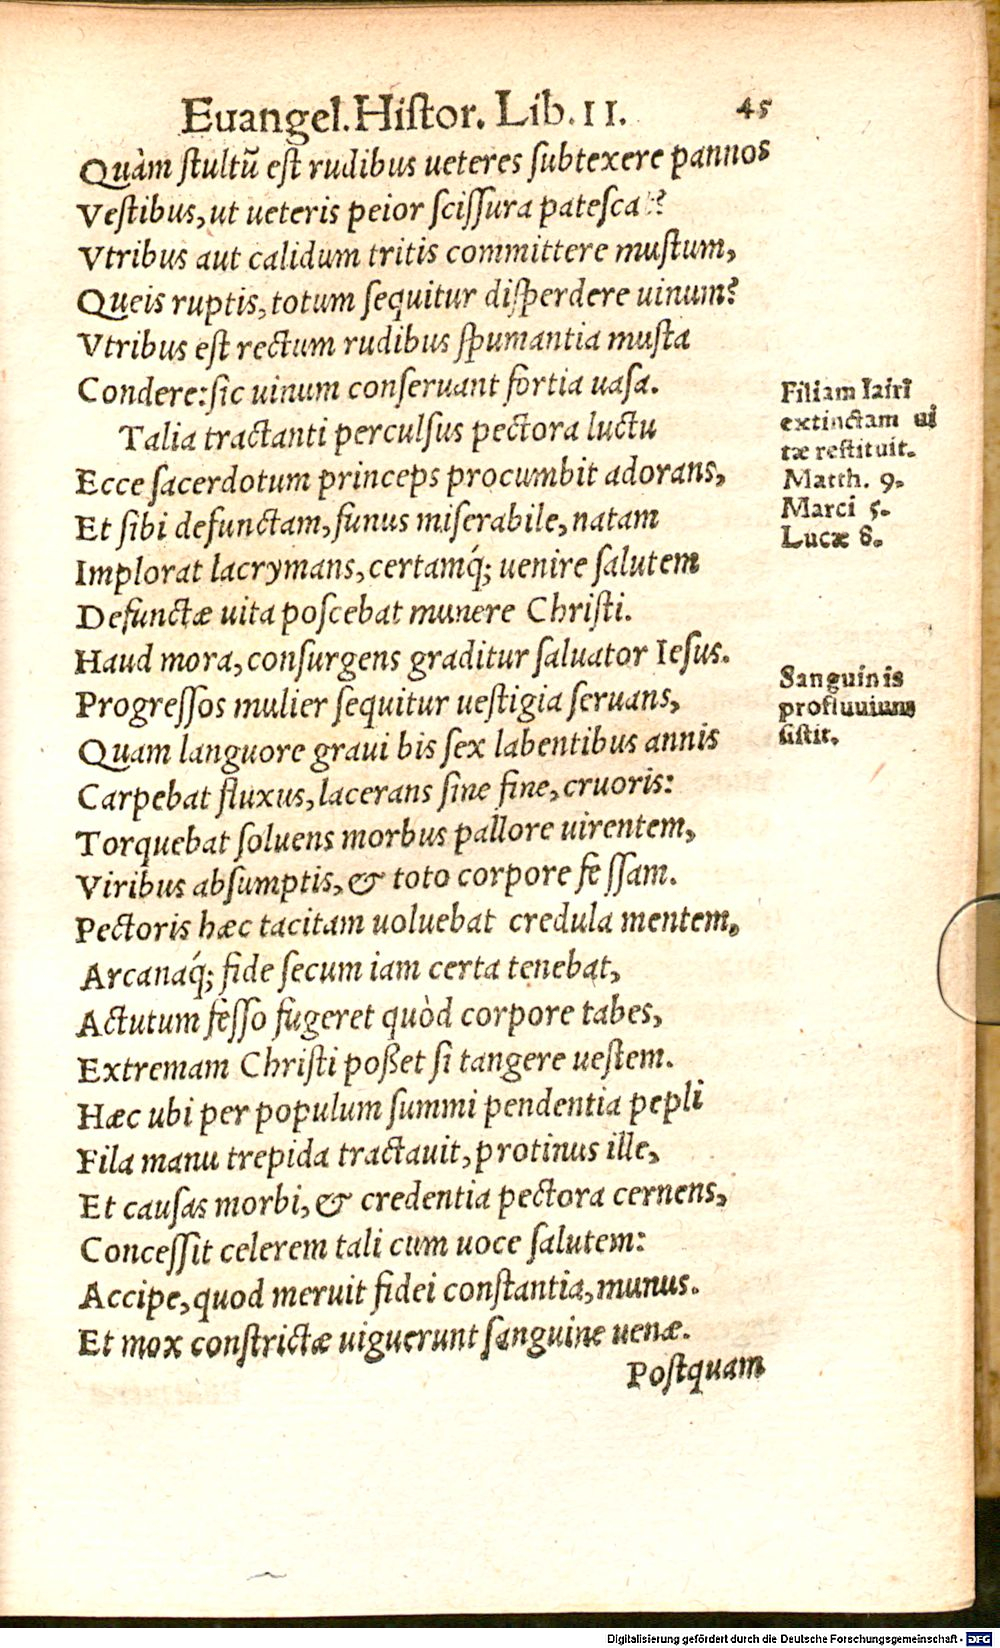 Euangel. Histor. Lib. II. 45
Quàm stultũ est rudibus ueteres subtexere pannos
Vestibus, ut ueteris peior scissura patesca ?
Vtribus aut calidum tritis committere mustum,
Queis ruptis, totum sequitur disperdere uinum?
Vtribus est rectum rudibus spumantia musta
Condere: sic uinum conseruant fortia uasa.
Talia tractanti perculsus pectora luctu
Ecce sacerdotum princeps procumbit adorans,
Et sibi defunctam, funus miserabile, natam
Implorat lacrymans, certamq́; uenire salutem
Defunctæ uita poscebat munere Christi.
Haud mora, consurgens graditur saluator Iesus.
Progressos mulier sequitur uestigia seruans,
Quam languore graui bis sex labentibus annis
Carpebat fluxus, lacerans sine fine, cruoris:
Torquebat soluens morbus pallore uirentem,
Viribus absumptis, & toto corpore fessam.
Pectoris hæc tacitam uoluebat credula mentem,
Arcanaq́; fide secum iam certa tenebat,
Actutum fesso fugeret quòd corpore tabes,
Extremam Christi poßet si tangere uestem.
Hæc ubi per populum summi pendentia pepli
Fila manu trepida tractauit, protinus ille,
Et causas morbi, & credentia pectora cernens,
Concessit celerem tali cum uoce salutem:
Accipe, quod meruit fidei constantia, munus.
Et mox constrictæ uiguerunt sanguine uenæ.
Postquam
Filiam Iairi
extinctam ui
tæ restituit.
Matth. 9.
Marci 5.
Lucæ 8.
Sanguinis
profluuium
sistit.
Digitalisierung gefördert durch die Deutsche Forschungsgemeinschaft - DFG